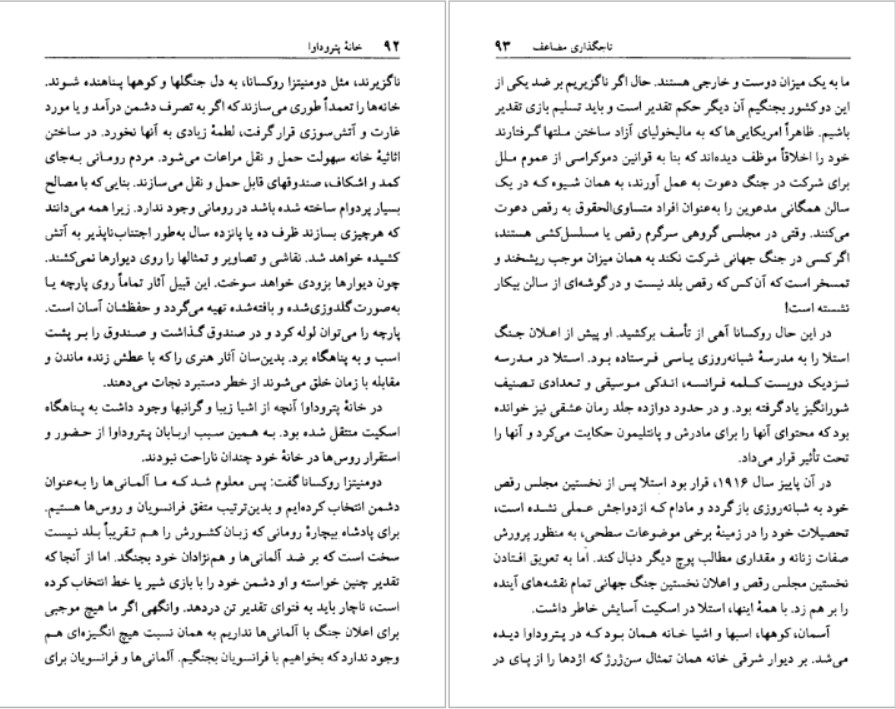 ۹۲ خانهٔ پتروداوا
ناگزیرند، مثل دومنیتزا روکسانا، به دل جنگلها و کوهها پناهنده شوند.
خانه‌ها را تعمداً طوری می‌سازند که اگر به تصرف دشمن درآمد و یا مورد
غارت و آتش‌سوزی قرار گرفت، لطمهٔ زیادی به آنها نخورد. در ساختن
اثاثیهٔ خانه سهولت حمل و نقل مراعات می‌شود. مردم رومانی به‌جای
کمد و اشکاف، صندوقهای قابل حمل و نقل می‌سازند. بنایی که با مصالح
بسیار پردوام ساخته شده باشد در رومانی وجود ندارد. زیرا همه می‌دانند
که هرچیزی بسازند ظرف ده یا پانزده سال به‌طور اجتناب‌ناپذیر به آتش
کشیده خواهد شد. نقاشی و تصاویر و تمثالها را روی دیوارها نمی‌کشند.
چون دیوارها بزودی خواهد سوخت. این قبیل آثار تماماً روی پارچه یا
به‌صورت گلدوزی‌شده و بافته‌شده تهیه می‌گردد و حفظشان آسان است.
پارچه را می‌توان لوله کرد و در صندوق گذاشت و صندوق را بر پشت
اسب و به پناهگاه برد. بدین‌سان آثار هنری را که با عطش زنده ماندن و
مقابله با زمان خلق می‌شوند از خطر دستبرد نجات می‌دهند.
در خانهٔ پتروداوا آنچه از اشیا زیبا و گرانبها وجود داشت به پناهگاه
اسکیت منتقل شده بود. به همین سبب اربابان پتروداوا از حضور و
استقرار روس‌ها در خانهٔ خود چندان ناراحت نبودند.
دومنیتزا روکسانا گفت: پس معلوم شد که ما آلمانی‌ها را به‌عنوان
دشمن انتخاب کرده‌ایم و بدین‌ترتیب متفق فرانسویان و روس‌ها هستیم.
برای پادشاه بیچارهٔ رومانی که زبان کشورش را هم تقریباً بلد نیست
سخت است که بر ضد آلمانی‌ها و هم‌نژادان خود بجنگد. اما از آنجا که
تقدیر چنین خواسته و او دشمن خود را با بازی شیر یا خط انتخاب کرده
است، ناچار باید به فتوای تقدیر تن دردهد. وانگهی اگر ما هیچ موجبی
برای اعلان جنگ با آلمانی‌ها نداریم به همان نسبت هیچ انگیزه‌ای هم
وجود ندارد که بخواهیم با فرانسویان بجنگیم. آلمانی‌ها و فرانسویان برای
تاجگذاری مضاعف ۹۳
ما به یک میزان دوست و خارجی هستند. حال اگر ناگزیریم بر ضد یکی از
این دو کشور بجنگیم آن دیگر حکم تقدیر است و باید تسلیم بازی تقدیر
باشیم. ظاهراً امریکایی‌ها که به مالیخولیای آزاد ساختن ملتها گرفتارند
خود را اخلاقاً موظف دیده‌اند که بنا به قوانین دموکراسی از عموم ملل
برای شرکت در جنگ دعوت به عمل آورند، به همان شیوه که در یک
سالن همگانی مدعوین را به‌عنوان افراد متساوی‌الحقوق به رقص دعوت
می‌کنند. وقتی در مجلسی گروهی سرگرم رقص یا مسلسل‌کشی هستند،
اگر کسی در جنگ جهانی شرکت نکند به همان میزان موجب ریشخند و
تمسخر است که آن کس که رقص بلد نیست و در گوشه‌ای از سالن بیکار
نشسته است!
در این حال روکسانا آهی از تأسف برکشید. او پیش از اعلان جنگ
استلا را به مدرسهٔ شبانه‌روزی یاسی فرستاده بود. استلا در مدرسه
نزدیک دویست کلمه فرانسه، اندکی موسیقی و تعدادی تصنیف
شورانگیز یاد گرفته بود. و در حدود دوازده جلد رمان عشقی نیز خوانده
بود که محتوای آنها را برای مادرش و پانتلیمون حکایت می‌کرد و آنها را
تحت تأثیر قرار می‌داد.
در آن پاییز سال ۱۹۱۶، قرار بود استلا پس از نخستین مجلس رقص
خود به شبانه‌روزی بازگردد و مادام که ازدواجش عملی نشده است،
تحصیلات خود را در زمینهٔ برخی موضوعات سطحی، به منظور پرورش
صفات زنانه و مقداری مطالب پوچ دیگر دنبال کند. اما به تعویق افتادن
نخستین مجلس رقص و اعلان نخستین جنگ جهانی تمام نقشه‌های آینده
را بر هم زد. با همهٔ اینها، استلا در اسکیت آسایش خاطر داشت.
آسمان، کوهها، اسبها و اشیا خانه همان بود که در پتروداوا دیده
می‌شد. بر دیوار شرقی خانه همان تمثال سن‌ژرژ که اژدها را از پای در